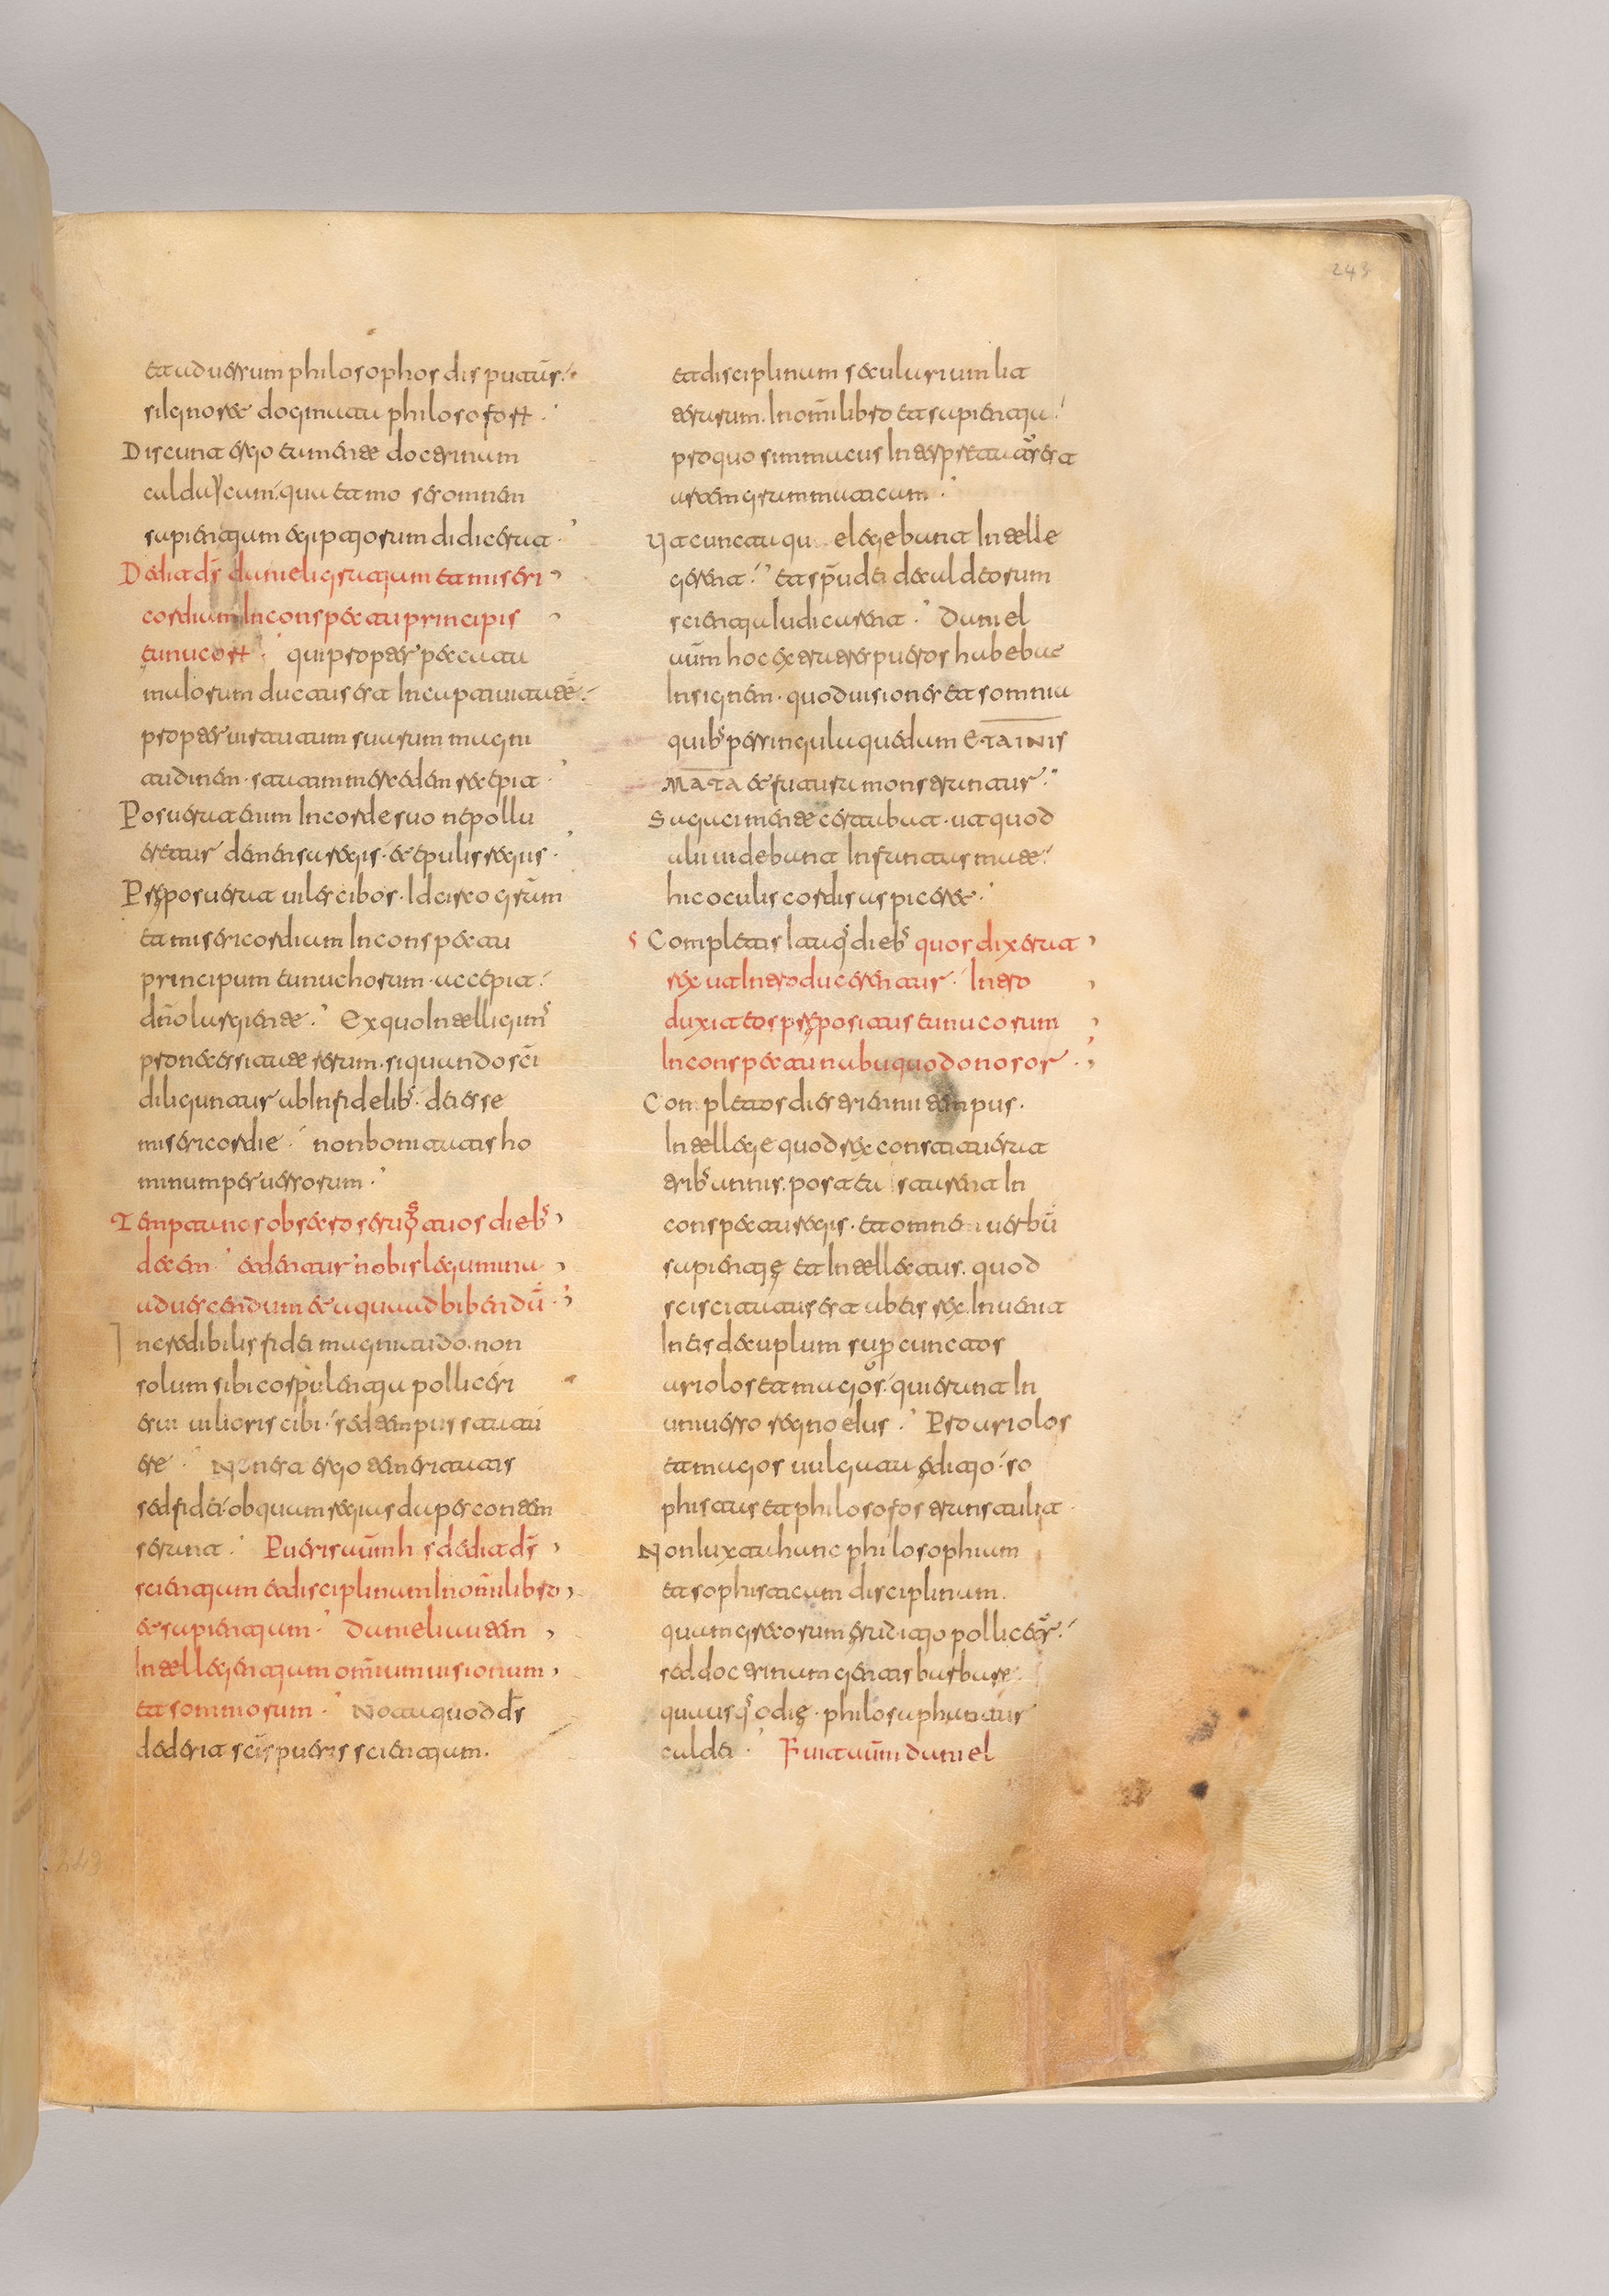 et aduersum philosophos disputans
si ignoret dogmata philosofor
Discunt ergo ea mente doctrinam
caldaycam, qua et mo ses omnem
sapientiam egiptiorum didicerat
Dedit ds danieli gratiam et miseri
cordiam in conspectu principis
eunucor. qui propter peccata
maiorum ductus est in captiuitate
propter uirtutum suarum magni
tudinem. statim mercedem recepit.
Posuerat enim in corde suo ne pollu
eretur de mensa regis. et epulis regiis.
Preposuerat uiles cibos. idcirco gram
et misericordiam in conspectu
principum eunuchorum. accepit
dno largiente. Ex quo intelligims
pro necessitate rerum. si quando sci
diliguntur ab infidelibs. dei esse
misericordie. non bonitatis ho
minum peruersorum.
Tempta nos obsecro seruos tuos diebs
decem. et dentur nobis legumina
ad uescendum et aqua ad bibendu.
Incredibilis fidei magnitudo. non
solum sibi corpulentia polliceri
esui uilioris cibi. sed tempus statu
ere. Non est ergo temeritatis
sed fidei. ob quam regias dapes contem
serunt. Pueris aum h s dedit ds
scientiam et disciplinam in omi libro
et sapientiam. Danieli autem
intellegentiam omium uisionum
et somniorum. Nota quod ds
dederit scis pueris scientiam.
et disciplinam secularium lit
terarum. in omi libro et sapientia.
pro quo simmacus interpretatus est
artem grammaticam.
Ut cuncta qu elegebant intelle
gerent. et spu dei de caldeorum
scientia iudicarent. Daniel
aum hoc extra tres pueros habebat
insignem. quod uisiones et somnia
quibs per singula quedam ETAINIS
MATA et futura monstrantur.
Sagaci mente certabat. ut quod
alii uidebant in fantasmate.
hic oculis cordis aspiceret.
Completis itaqs diebs quos dixerat
rex ut introducerentur. intro
duxit eos prepositus eunucorum
in conspectu nabuquodonosor.
Completos dies trienni tempus.
intellege quod rex constituerat
tribs annis. post ea starent in
conspectu regis. et omne uerbu
sapientie et intellectus. quod
sciscitatus est ab eis rex. inuenit
in eis decuplum sup cunctos
ariolos et magos. qui erant in
uniuerso regno eius. Pro ariolos
et magos uulgata editio. so
phistas et philosofos transtulit.
Non iuxta hanc philosophiam
et sophisticam disciplinam.
quam grecorum eruditio pollicetr.
sed doctrinam gentis barbare.
qua usqs odie. philosaphantur
caldei. Fuit aum daniel
243